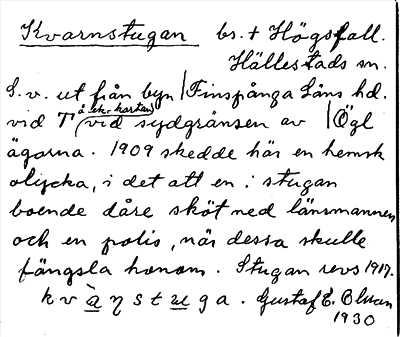 Kvarnstugan bs. t Högsfall.
Hällestads sn.
S.v. ut från byn | Finspånga Läns hd.
å ek. kartan
vid T (vid sydgränsen av | Ögl
ägorna. 1909 skedde här en hemsk
olycka, i det att en i stugan
boende dåre sköt ned länsmannen
och en polis, när dessa skulle
fängsla honom. Stugan revs 1917.
kvàηstuga. Gustaf E.
1930